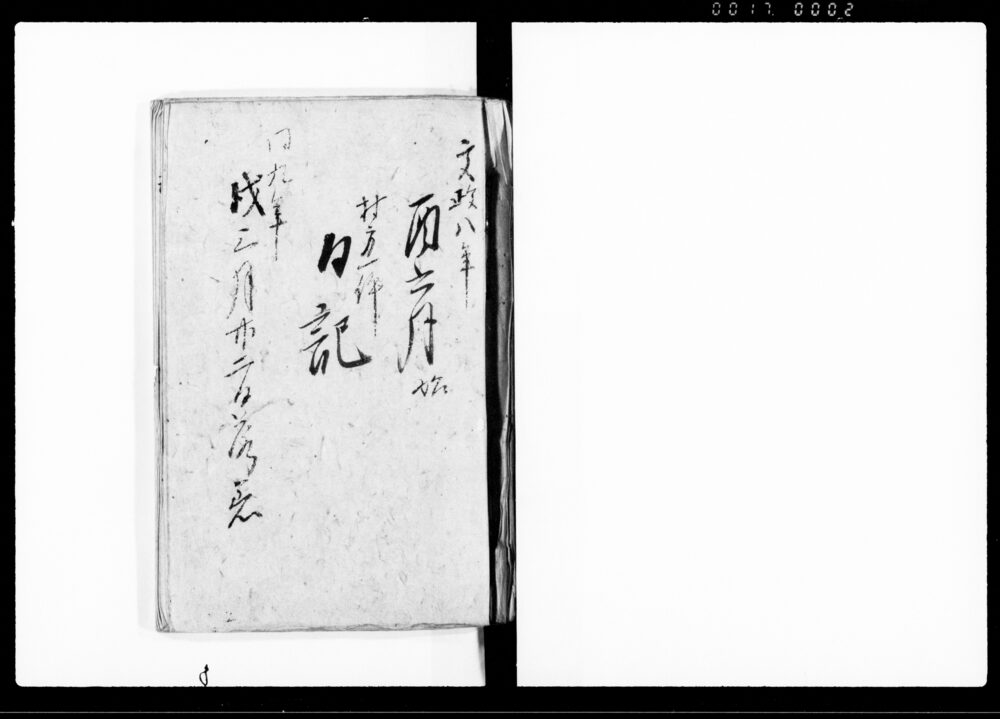 0017 0002
文政八年
酉六月
始
村方一件
日記
同九年
戌三月廿二日落着